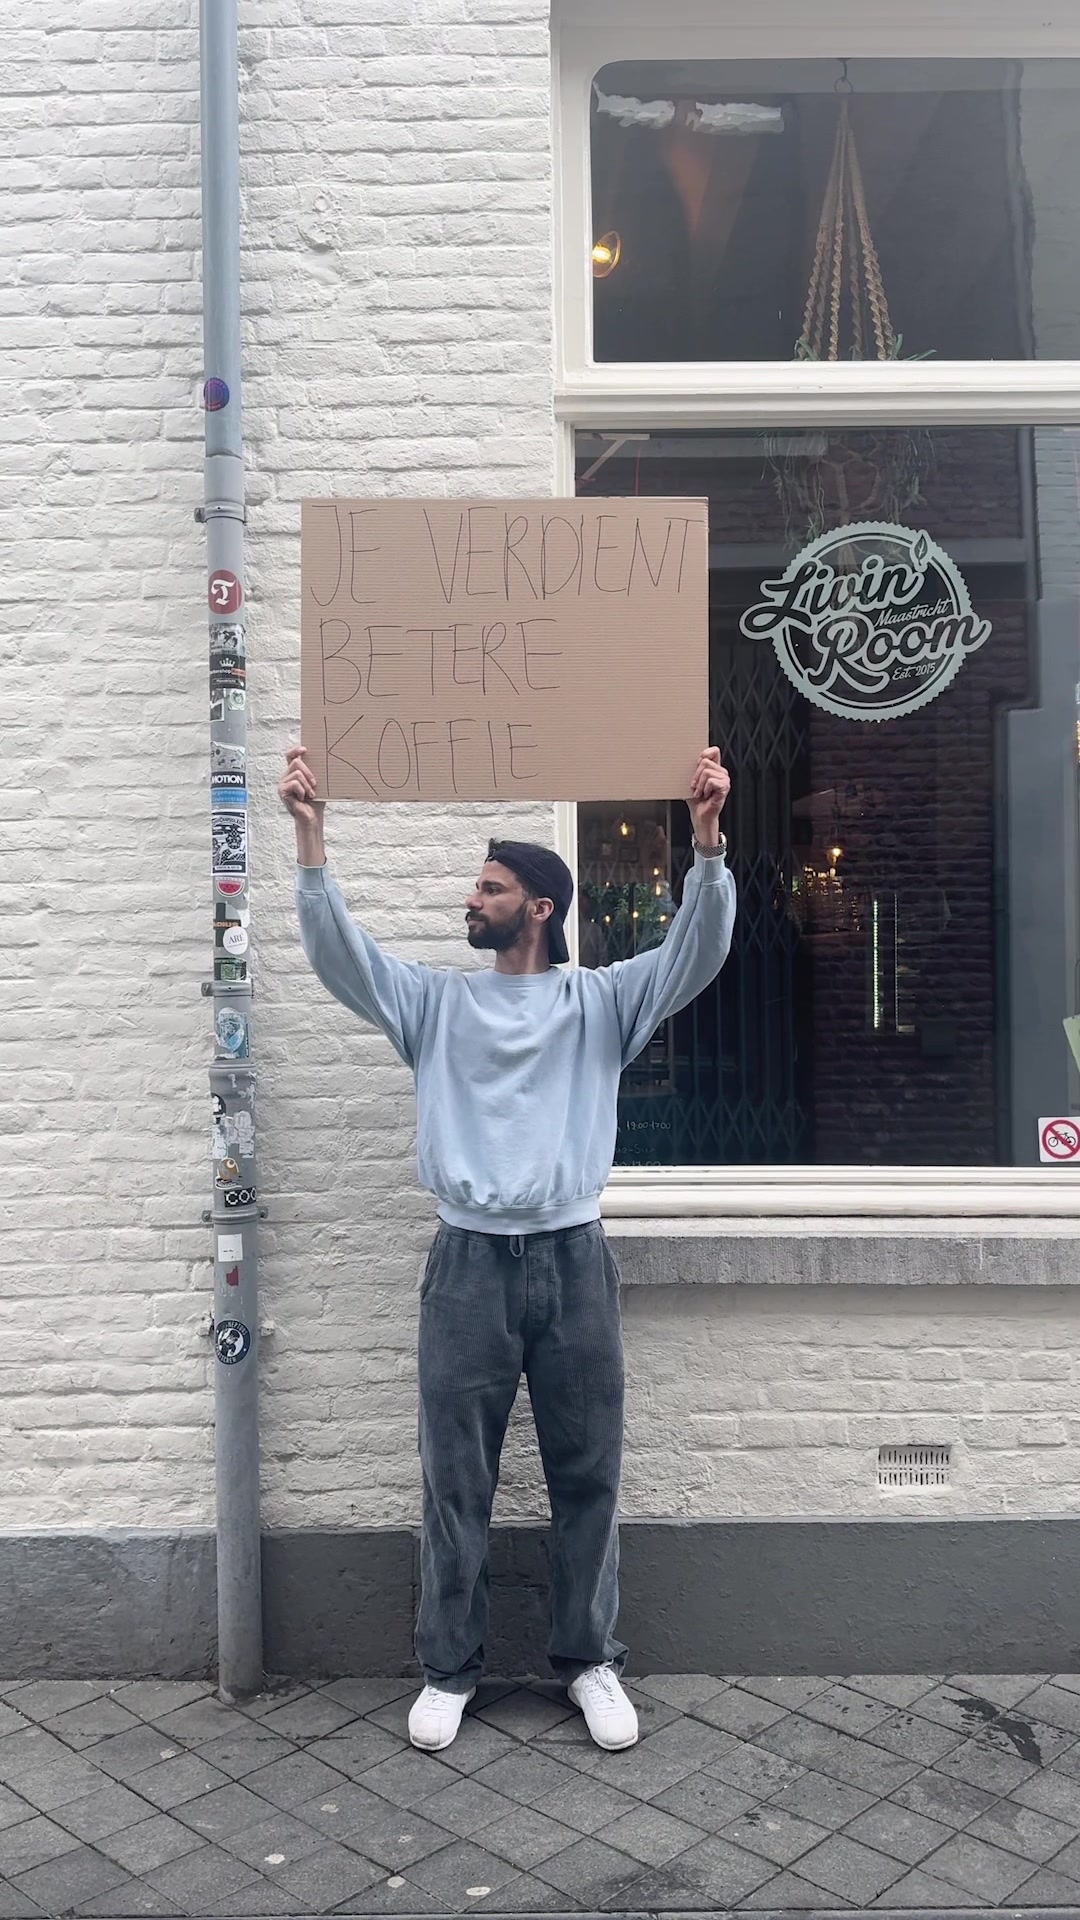 JE VERDIENT
BETERE
KOFFIE
Livin'
Maastricht
Room
Est. 2015
MOTION
COO